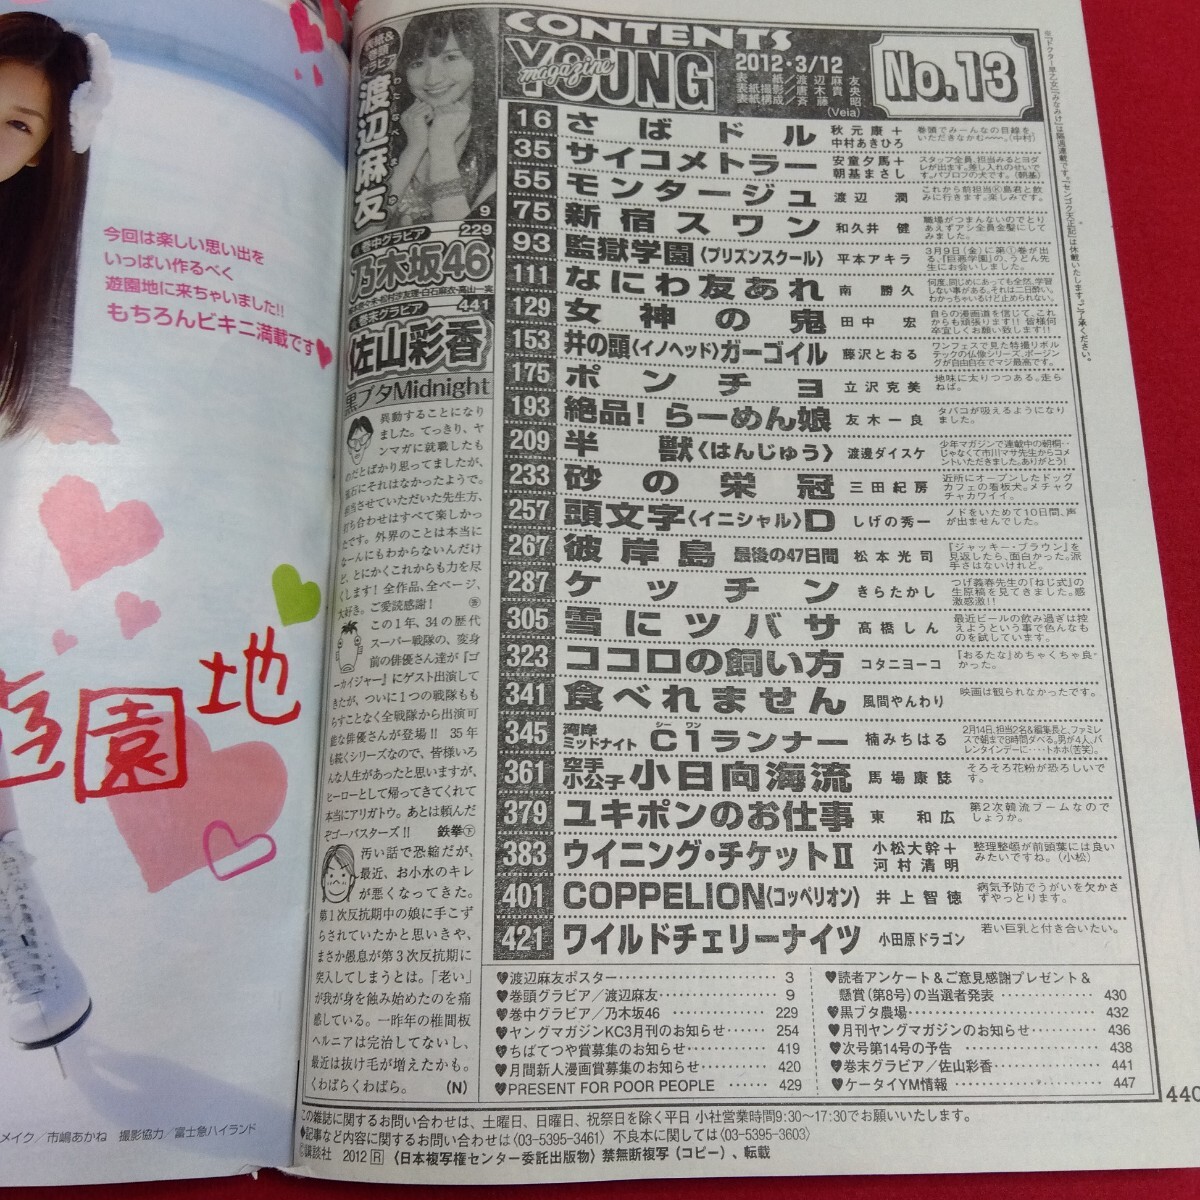 今回は楽しい思い出を
いっぱい作るべく
遊園地に来ちゃいました!!
もちろんビキニ満載です♥
遊園地
メイク／市嶋あかね 撮影協力／富士急ハイランド
表紙&
巻頭
グラビア
渡辺麻友
わたなべまゆ
9
巻中グラビア 229
乃木坂46
松村沙友理・白石麻衣・高山一実
巻末グラビア 441
佐山彩香
黒ブタMidnight
異動することになり
ました。てっきり、ヤ
ンマガに就職したも
のだとばかり思ってましたが、
にそれはなかったようで。
当させていただいた先生方、
ち合わせはすべて楽しかっ
たです。外界のことは本当に
なーんにもわからないんだけ
ど、とにかくこれからも力を尽
くします！全作品、全ページ、
大好き。ご愛読感謝！
この1年、34の歴代
スーパー戦隊の、変身
前の俳優さん達が『ゴ
ーカイジャー』にゲスト出演して
きたが、ついに1つの戦隊もも
らすことなく全戦隊から出演可
能な俳優さんが登場!! 35年
も続くシリーズなので、皆様いろ
んな人生があったと思いますが、
ヒーローとして帰ってきてくれて
本当にアリガトウ。あとは頼んだ
ぞゴーバスターズ!! 鉄拳㊦
汚い話で恐縮だが、
最近、お小水のキレ
が悪くなってきた。
第1次反抗期中の娘に手こず
らされていたかと思いきや、
まさか愚息が第3次反抗期に
突入してしまうとは。「老い」
が我が身を蝕み始めたのを痛
感している。一昨年の椎間板
ヘルニアは完治してないし、
最近は抜け毛が増えたかも。
くわばらくわばら。 (N)
CONTENTS
YOUNG
magazine
2012・3/12
表紙／渡辺麻友
表紙撮影／唐木貴央
表紙構成／斉藤昭
(Veia)
No.13
16 さばドル 秋元康＋中村あきひろ 巻頭でみーんなの目線を、いただきなかむ〜〜〜。(中村)
35 サイコメトラー 安童夕馬＋朝基まさし スタッフ全員、担当みるとヨダレが出ます。差し入れのせいです。パブロフの犬です。(朝基)
55 モンタージュ 渡辺潤 これから前担当Ⓚ島君と飲みに行きます。楽しみです。
75 新宿スワン 和久井健 職場がつまんないのでとりあえずアシ全員金髪にしてみました。
93 監獄学園〈プリズンスクール〉 平本アキラ 3月9日(金)に第①巻が出る、『巨悪学園』の、うどん先生にお会いしました。
111 なにわ友あれ 南勝久 何度、同じめにあっても全然、学習しない事がある。それは二日酔い。わかっちゃいるけど止められない。
129 女神の鬼 田中宏 自らの漫画道を信じて、これからも頑張ります!! 皆様何卒宜しくお願い致します!!
153 井の頭〈イノヘッド〉ガーゴイル 藤沢とおる ワンフェスで見た特撮リボルテックの仏像シリーズ、ポージングが自由自在でマジ最高です。
175 ポンチョ 立沢克美 地味に太りつつある。走らねば。
193 絶品！らーめん娘 友木一良 タバコが吸えるようになりました。
209 半獣〈はんじゅう〉 渡邊ダイスケ 少年マガジンで連載中の朝桐…じゃなくて市川マサ先生からコメントいただきました。ありがとう！
233 砂の栄冠 三田紀房 近所にオープンしたドッグカフェの看板犬。メチャクチャカワイイ。
257 頭文字〈イニシャル〉D しげの秀一 ノドをいためて10日間、声が出ませんでした。
267 彼岸島 最後の47日間 松本光司 『ジャッキー・ブラウン』を見返したら、面白かった。派手さはないけれど。
287 ケッチン きらたかし つげ義春先生の『ねじ式』の生原稿を見てきました。感激感激!!
305 雪にツバサ 髙橋しん 最近ビールの飲み過ぎは控えようという事で色んなものを試しています。
323 ココロの飼い方 コタニヨーコ 『おるたな』めちゃくちゃ良かった。
341 食べれません 風間やんわり 映画は観られなかったです。
345 湾岸ミッドナイト C1ランナー シーワン 楠みちはる 2月14日、担当2名&編集長と、ファミレスで朝まで8時間ダベる。男が4人、バレンタインデーに‥‥トホホ(苦笑)。
361 空手小公子 小日向海流 馬場康誌 そろそろ花粉が恐ろしいです。
379 ユキポンのお仕事 東和広 第2次韓流ブームなのでしょうか。
383 ウイニング・チケットⅡ 小松大幹＋河村清明 整理整頓が前頭葉には良いみたいですね。(小松)
401 COPPELION〈コッペリオン〉 井上智徳 病気予防でうがいを欠かさずやっとります。
421 ワイルドチェリーナイツ 小田原ドラゴン 若い巨乳と付き合いたい。
♥渡辺麻友ポスター 3
♥巻頭グラビア／渡辺麻友 9
♥巻中グラビア／乃木坂46 229
♥ヤングマガジンKC3月刊のお知らせ 254
♥ちばてつや賞募集のお知らせ 419
♥月間新人漫画賞募集のお知らせ 420
♥PRESENT FOR POOR PEOPLE 429
♥読者アンケート&ご意見感謝プレゼント&
懸賞(第8号)の当選者発表 430
♥黒ブタ農場 432
♥月刊ヤングマガジンのお知らせ 436
♥次号第14号の予告 438
♥巻末グラビア／佐山彩香 441
♥ケータイYM情報 447
440
この雑誌に関するお問い合わせは、土曜日、日曜日、祝祭日を除く平日 小社営業時間9:30〜17:30でお願いいたします。
◆記事など内容に関するお問い合わせは〈03-5395-3461〉 不良本に関しては〈03-5395-3603〉
©講談社 2012 Ⓡ 〈日本複写権センター委託出版物〉禁無断複写(コピー)、転載